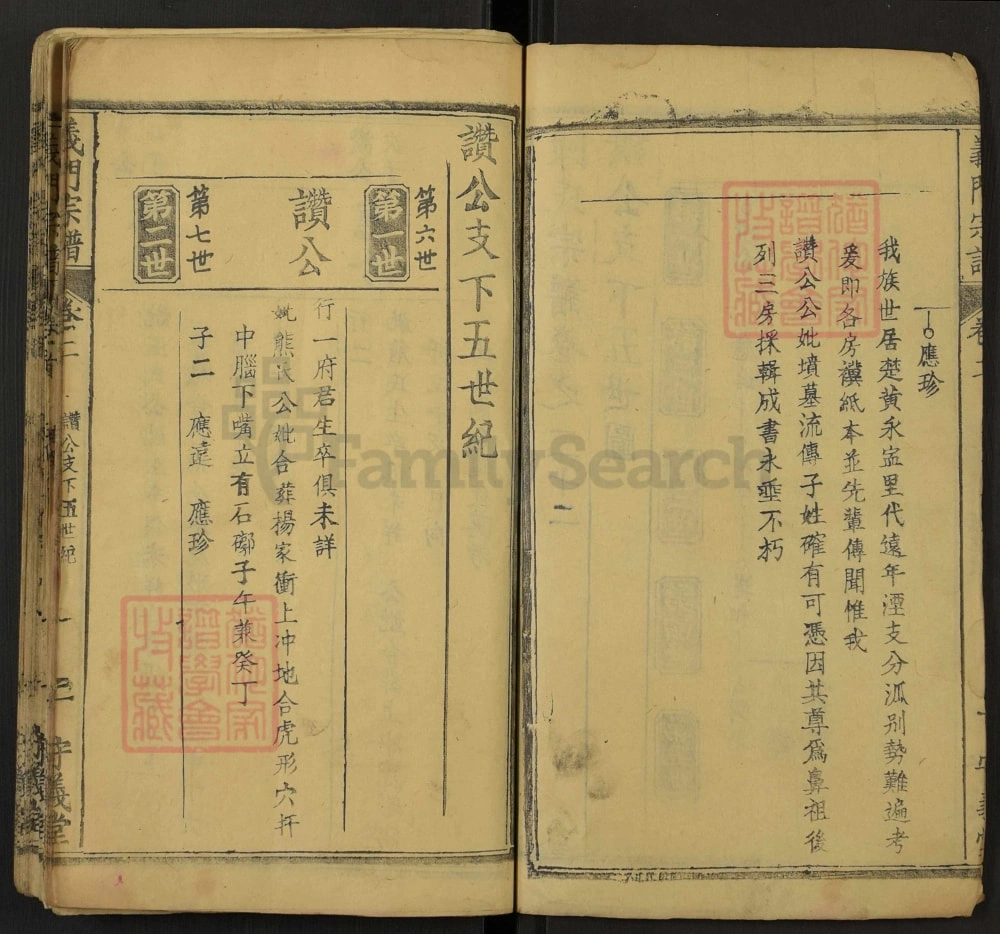 義門宗譜
卷二
應珍
我族世居楚黃永寍里代遠年湮支分泒別勢難遍考
爰即各房襍紙本並先輩傳聞惟我
讚公公妣墳墓流傳子姓確有可憑因其尊爲鼻祖後
列三房採輯成書永垂不朽
二
讚公支下五世紀
第六世
第一世
讚公
行一府君生卒俱未詳
妣熊氏公妣合葬揚家衝上冲地合虎形穴扞
中腦下嘴立有石鄉子午兼癸丁
子二 應遠 應珍
第七世
第二世
義門宗譜
卷二
讚公支下五世紀
三
守義堂
FamilySearch